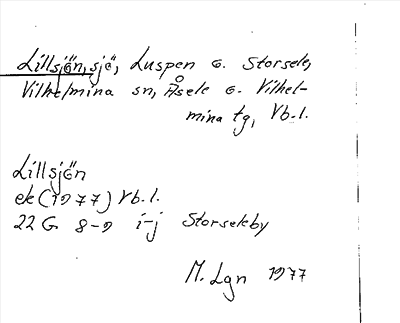 Lillsjön, sjö, Luspen o. Storsele,
Vilhelmina sn, Åsele o. Vilhel-
mina tg, Vb. l.
Lillsjön
ek (1977) Vb. l.
22 G 8-9 i-j Storseleby
M. Lgn 1977